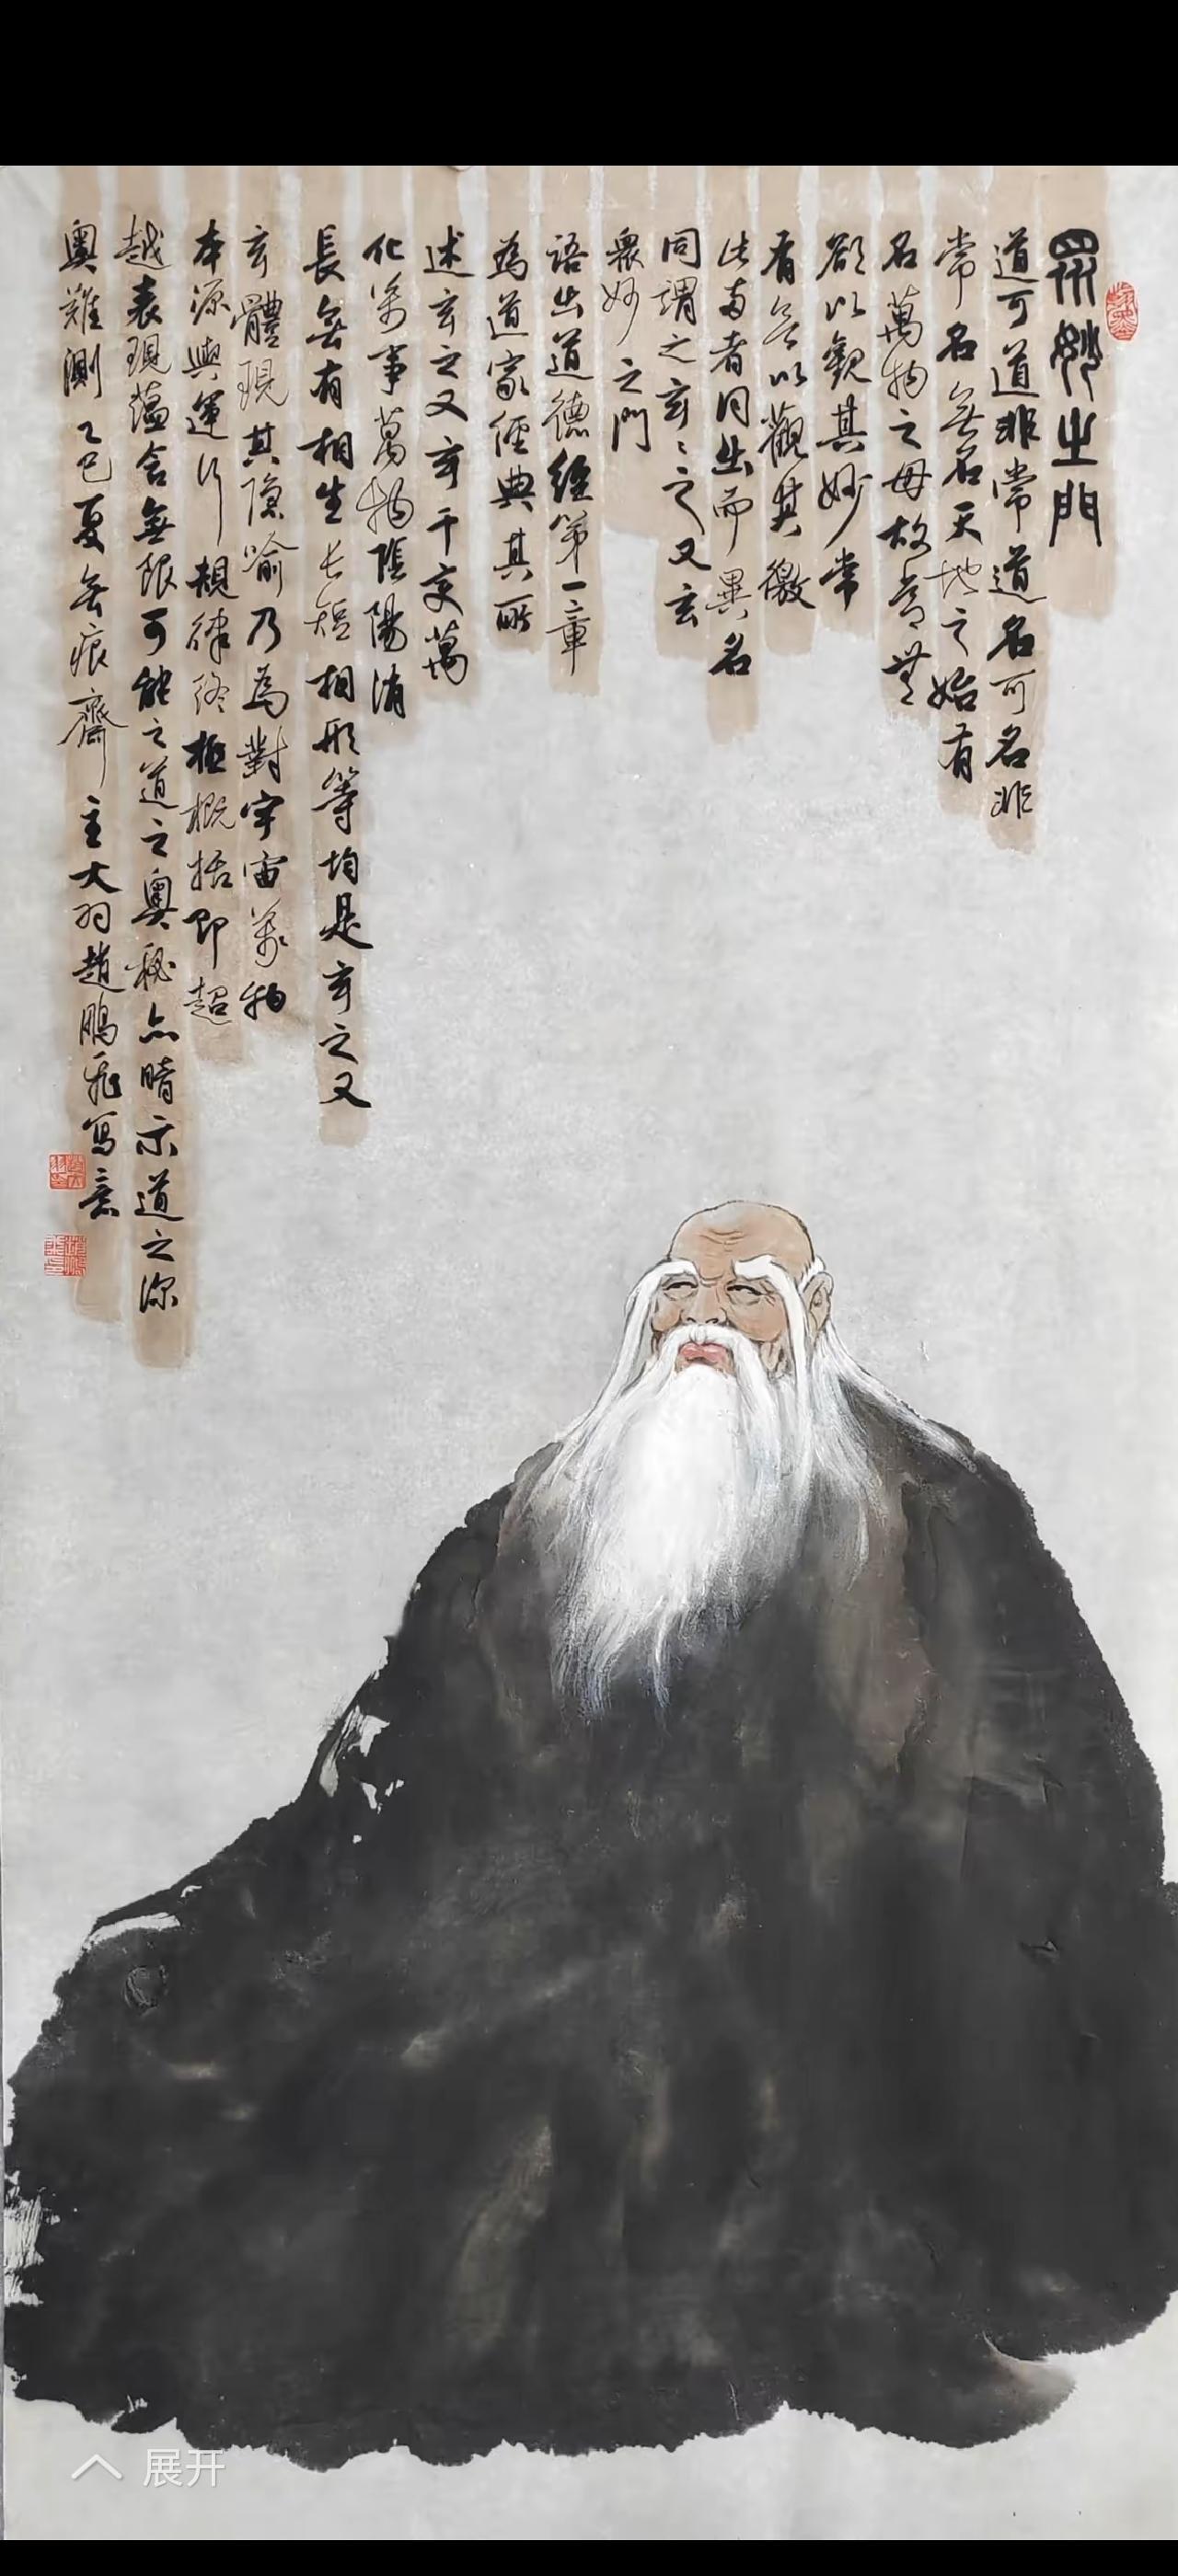 眾妙之門
道可道非常道名可名非
常名無名天地之始有
名萬物之母故常無
欲以觀其妙常
有欲以觀其徼
此兩者同出而異名
同謂之玄〻之又玄
眾妙之門
語出道德經第一章
為道家經典其所
述玄之又玄千變萬
化萬事萬物陰陽消
長無有相生長短相形等均是玄之又
玄體現其隱喻乃為對宇宙萬物
本源與運行規律終極概括即超
越表現蘊含無限可能之道之奧秘亦暗示道之深
奧難測乙巳夏無痕齋主大羽趙鵬飛寫意
展开